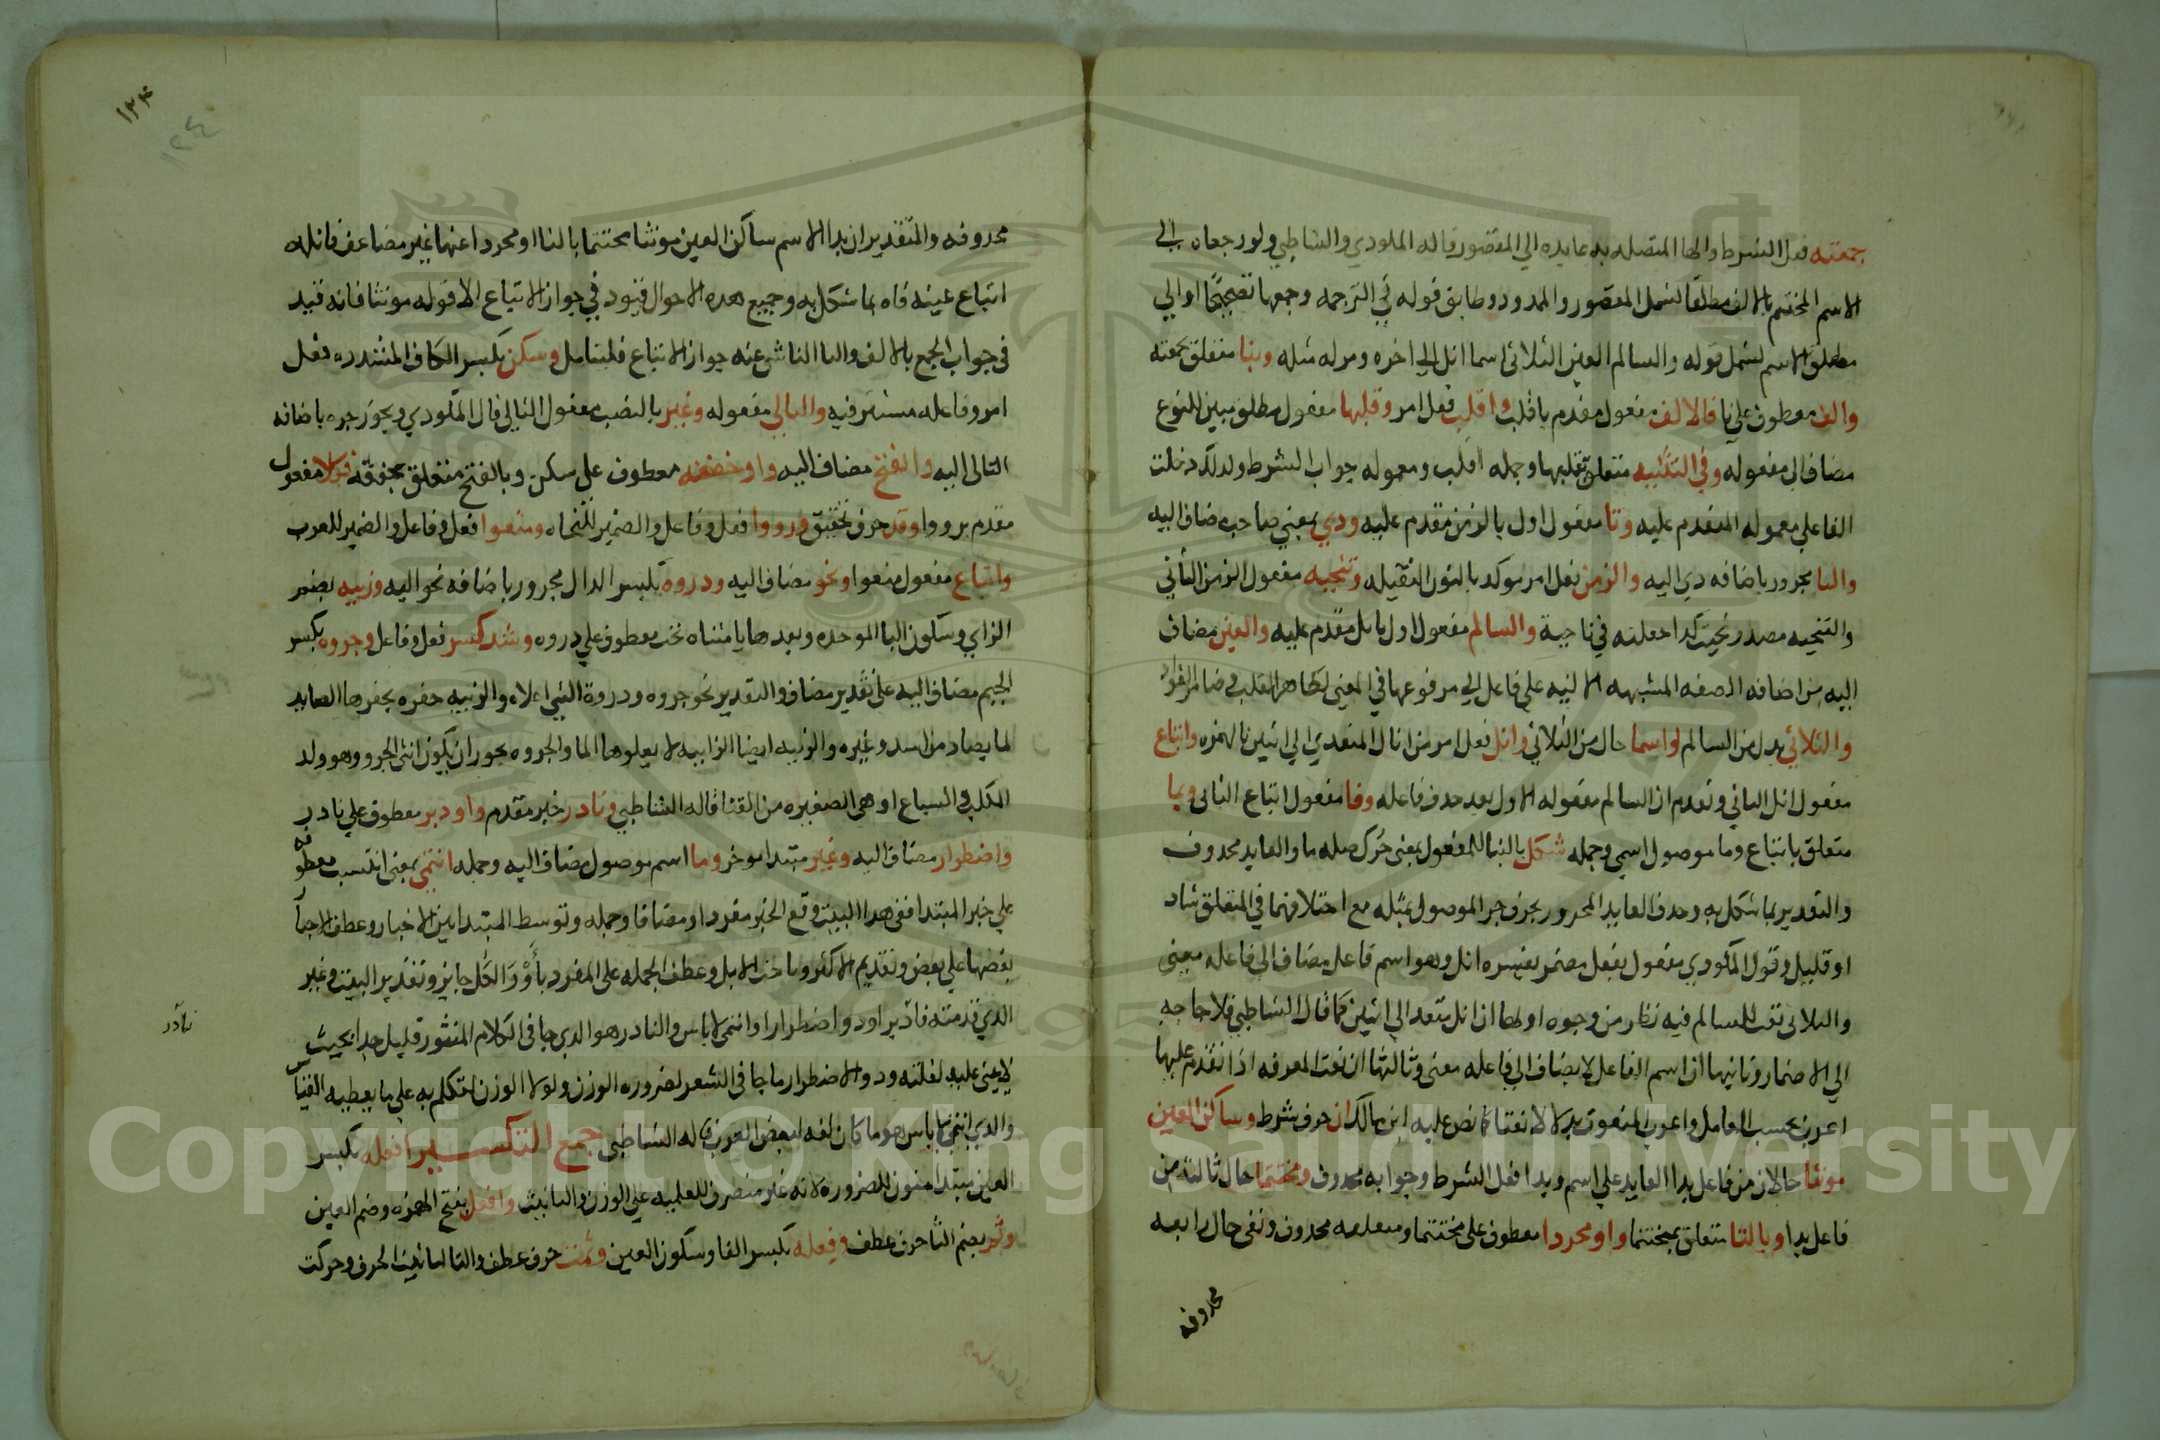 جمعته فعل الشرط والها المتصله به عايده الي المقصور قاله المكودي والشاطبي ولو رجعاه الي
الاسم المختتم بالالف مطلقا لشمل المقصور والممدود وطابق قوله في الترجمه وجمعها تصحيحًا او الي
مطلق الاسم لشمل قوله والسالم العين الثلاثى اسما انل الي اخره ومر له مثله وبتا متعلق بجمعته
والف معطوف علي تا فالالف مفعول مقدم باقلب واقلب فعل امر وقلبها مفعول مطلق مبين للنوع
مضاف الي مفعوله وفي التثنيه متعلق بقلبها وجمله اقلب ومعموله جواب الشرط ولذلك دخلت
الفا علي معموله المتقدم عليه وتا مفعول اول بالزمن مقدم عليه وذي بمعني صاحب مضاف اليه
والتا مجرور باضافه ذي اليه والزمن فعل امر موكد بالنون الثقيله وتنحيه مفعول الزمن الثأني
والتنحيه مصدر نحيت كذا جعلته في ناحية والسالم مفعول اول بانل مقدم عليه والعين مضاف
اليه من اضافه الصفه المشبهه
والثلاثي بدل من السالم واسما حال من الثلاثي وانل فعل امر من انال المتعدي الي اثنين بالهمزه واتباع
مفعول انل الثاني وتقدم ان السالم مفعوله الاول بعد حذف فاعله وفا مفعول اتباع الثانى وبما
متعلق باتباع وما موصول اسمي وجمله شكل بالبنا للمفعول بمعنى حُرك صله ما والعايد محذوف
والتقدير بما شكل به وحذف العايد المجرور بحرف جر الموصول بمثله مع اختلافهما في المتعلق شاذ
او قليل وقول المكودي مفعول بفعل مضمر يفسره انل وهو اسم فاعل مضاف الى فاعله معنى
والثلاثى نعت للسالم فيه نظر من وجوه اولها ان انل متعد الي اثنين كما قال الشاطبي فلا حاجه
الي الاضمار وثانيها ان اسم الفاعل لا يضاف الي فاعله معنى وثالثها ان نعت المعرفه اذا تقدم عليها
اعرب بحسب العامل واعرب المنعوت بدلا لا نعتا كما نص عليه ابن مالك ان حرف شرط وساكن العين
مونثا حالان من فاعل بدا العايد علي اسم وبدا فعل الشرط وجوابه محذوف ومختتما حال ثالثة من
فاعل بدا وبالتا متعلق بمختتما واو مجردا معطوف على مختتما ومتعلقه محذوف وهى حال رابعه
محذوفه
١٢٤
١٢٤
محذوفه والتقدير ان بدا الاسم ساكن العين مونثا مختتما بالتا او مجردا عنها غير مضاعف فانله
اتباع عينه فاه بما شكل به وجميع هذه الاحوال قيود في جواز الاتباع الا قوله مونثا فانه قيد
فى جواب الجمع بالالف والتا الناشي عنه جواز الاتباع فليتامل وسكن بكسر الكاف المشدده فعل
امر وفاعله مستتر فيه والتالي مفعوله وغير بالنصب مفعول التالي قال المكودي ويجوز جره باضافه
التالى اليه والفتح مضاف اليه واو خففه معطوف علي سكن وبالفتح متعلق بخففه فكلا مفعول
مقدم برووا وقد حرف تحقيق ورووا فعل وفاعل والضمير للنحاه ومنعوا فعل وفاعل والضمير للعرب
واتباع مفعول منعوا ونحو مضاف اليه وذروه بكسر الذال مجرور باضافه نحو اليه وزبيه بضم
الزاي وسكون البا الموحده وبعدها يا مثناه تحت معطوف علي ذروه وشذ كسر فعل وفاعل وجروه بكسر
الجيم مضاف اليه على تقدير مضاف والتقدير نحو جروه وذروة الشي اعلاه والزبيه حفره يحفرها الصايد
لما يصاد من اسد وغيره والزبيه ايضا الرابيه لا يعلوها الما والجروه يجوز ان يكون انثى الجرو وهو ولد
الكلب والسباع او هى الصغيره من القثا قاله الشاطبي ونادر خبر مقدم واو ذير معطوف علي نادر
واضطرار مضاف اليه وغير مبتدا موخر وما اسم موصول مضاف اليه وجمله انتمي بمعنى انتسب معطوفه
علي خبر المبتدا ففي هذا البيت وقع الخبر مفردا ومضافا وجمله وتوسط المبتدا بين الاخبار وعطف الاخبار
بعضها علي بعض وتقديم الاكثر وتاخر الاقل وعطف الجمله على المفرد بأَوْ والكل جايز وتقدير البيت وغير
الذي قدمته نادر او ذو اضطرار او انتمى لاناس والنادر هو الذي جا فى الكلام المنثور قليل جدا بحيث
لا يبنى عليه لقلته وذو الاضطرار ما جا فى الشعر لضروره الوزن ولولا الوزن لتكلم به علي ما يعطيه القياس
والذي انتمى لاناس هو ما كان لغه لبعض العرب قاله الشاطبي جمع التكسير افعله بكسر
العين مبتدا منون للضروره لانه غير منصرف للعلميه علي الوزن والتانيث وافعل بفتح الهمزه وضم العين
وثم بضم الثا حرف عطف وفعله بكسر الفا وسكون العين وثمت حرف عطف والتا لتانيث الحرف وحركت
نادر
Copyright © King Saud University